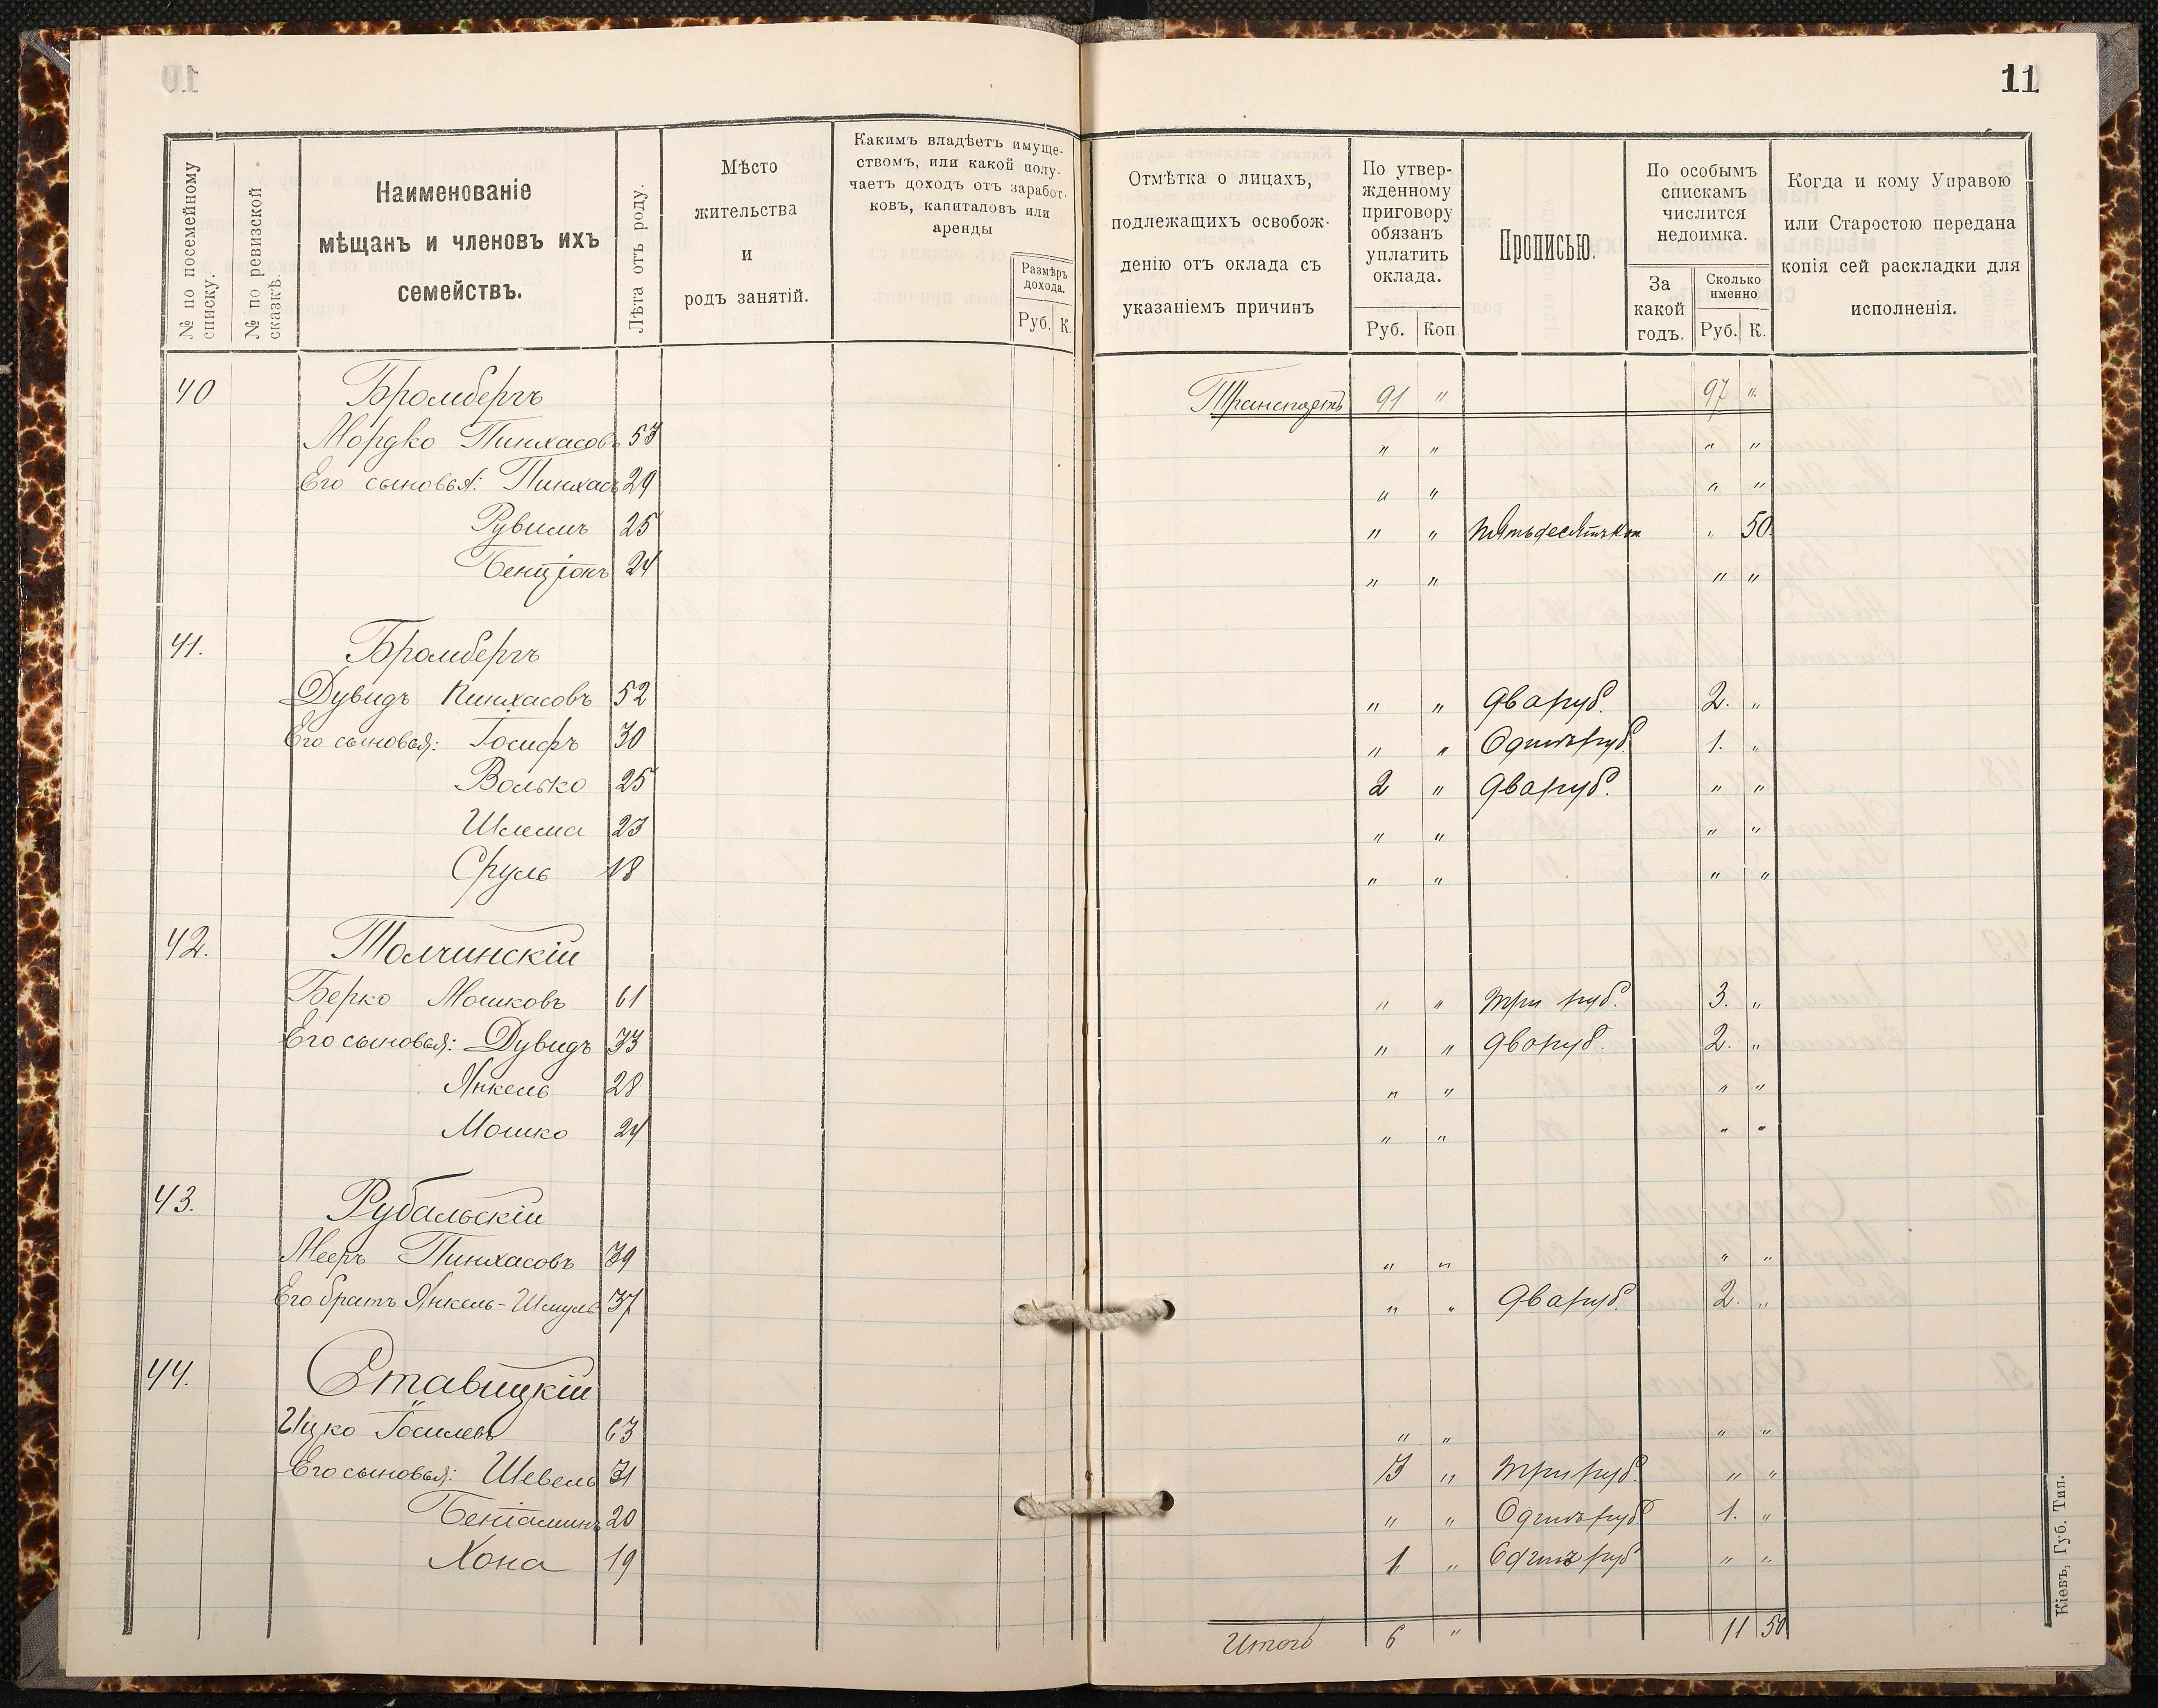 11
№ по посемейному списку.
№ по ревизской сказкѣ.
Наименованіе
мѣщанъ и членовъ ихъ
семействъ.
Лѣта отъ роду.
Мѣсто
жительства
и
родъ занятій.
Какимъ владѣетъ имуще-
ствомъ, или какой полу-
чаетъ доходъ отъ заработ-
ковъ, капиталовъ или
аренды
Размѣръ
дохода.
Руб. К.
Отмѣтка о лицахъ,
подлежащихъ освобож-
денію отъ оклада съ
указаніемъ причинъ
По утвер-
жденному
приговору
обязанъ
уплатить
оклада.
Руб. Коп.
Прописью.
По особымъ
спискамъ
числится
недоимка.
За
какой
годъ.
Сколько
именно
Руб. К.
Когда и кому Управою
или Старостою передана
копія сей раскладки для
исполненія.
40 Бромбергъ Транспортъ 91 " 97 "
Мордко Пинхасовъ 53 " " " "
Его сыновья: Пинхасъ 29 " " " "
Рувимъ 25 " " пятьдесятъ коп " 50.
Бенціонъ 24 " " " "
41. Бромбергъ
Дувидъ Пинхасовъ 52 " " два руб. 2. "
Его сыновья: Іосифъ 30 " " Одинъ руб. 1. "
Волько 25 2 " два руб. " "
Шлема 23 " " " "
Сруль 18 " " " "
42. Толчинскій
Берко Мошковъ 61 " " три руб. 3. "
Его сыновья: Дувидъ 33 " " два руб. 2. "
Янкель 28 " " " "
Мошко 24 " " " "
43. Рубальскій
Мееръ Пинхасовъ 39 " " " "
Его братъ Янкель-Шмуль 37 " " два руб. 2. "
44. Ставицкій
Ицко Іосилевъ 63 " " " "
Его сыновья: Шевель 31 3 " три руб. " "
Беніаминъ 20 " " Одинъ руб. 1. "
Хона 19 1 " Одинъ руб " "
Итого 6 " 11 50
Кіевъ, Губ. Тип.